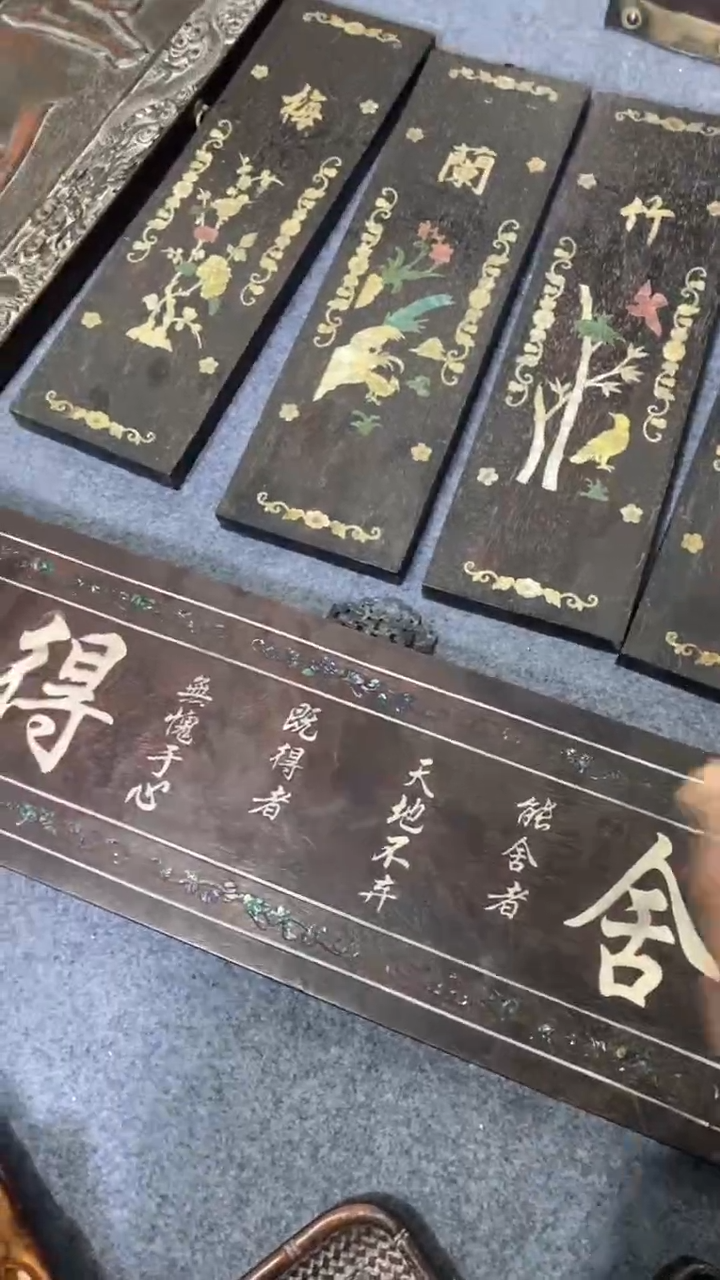 梅
蘭
竹
舍
能舍者
天地不弃
既得者
無愧于心
得